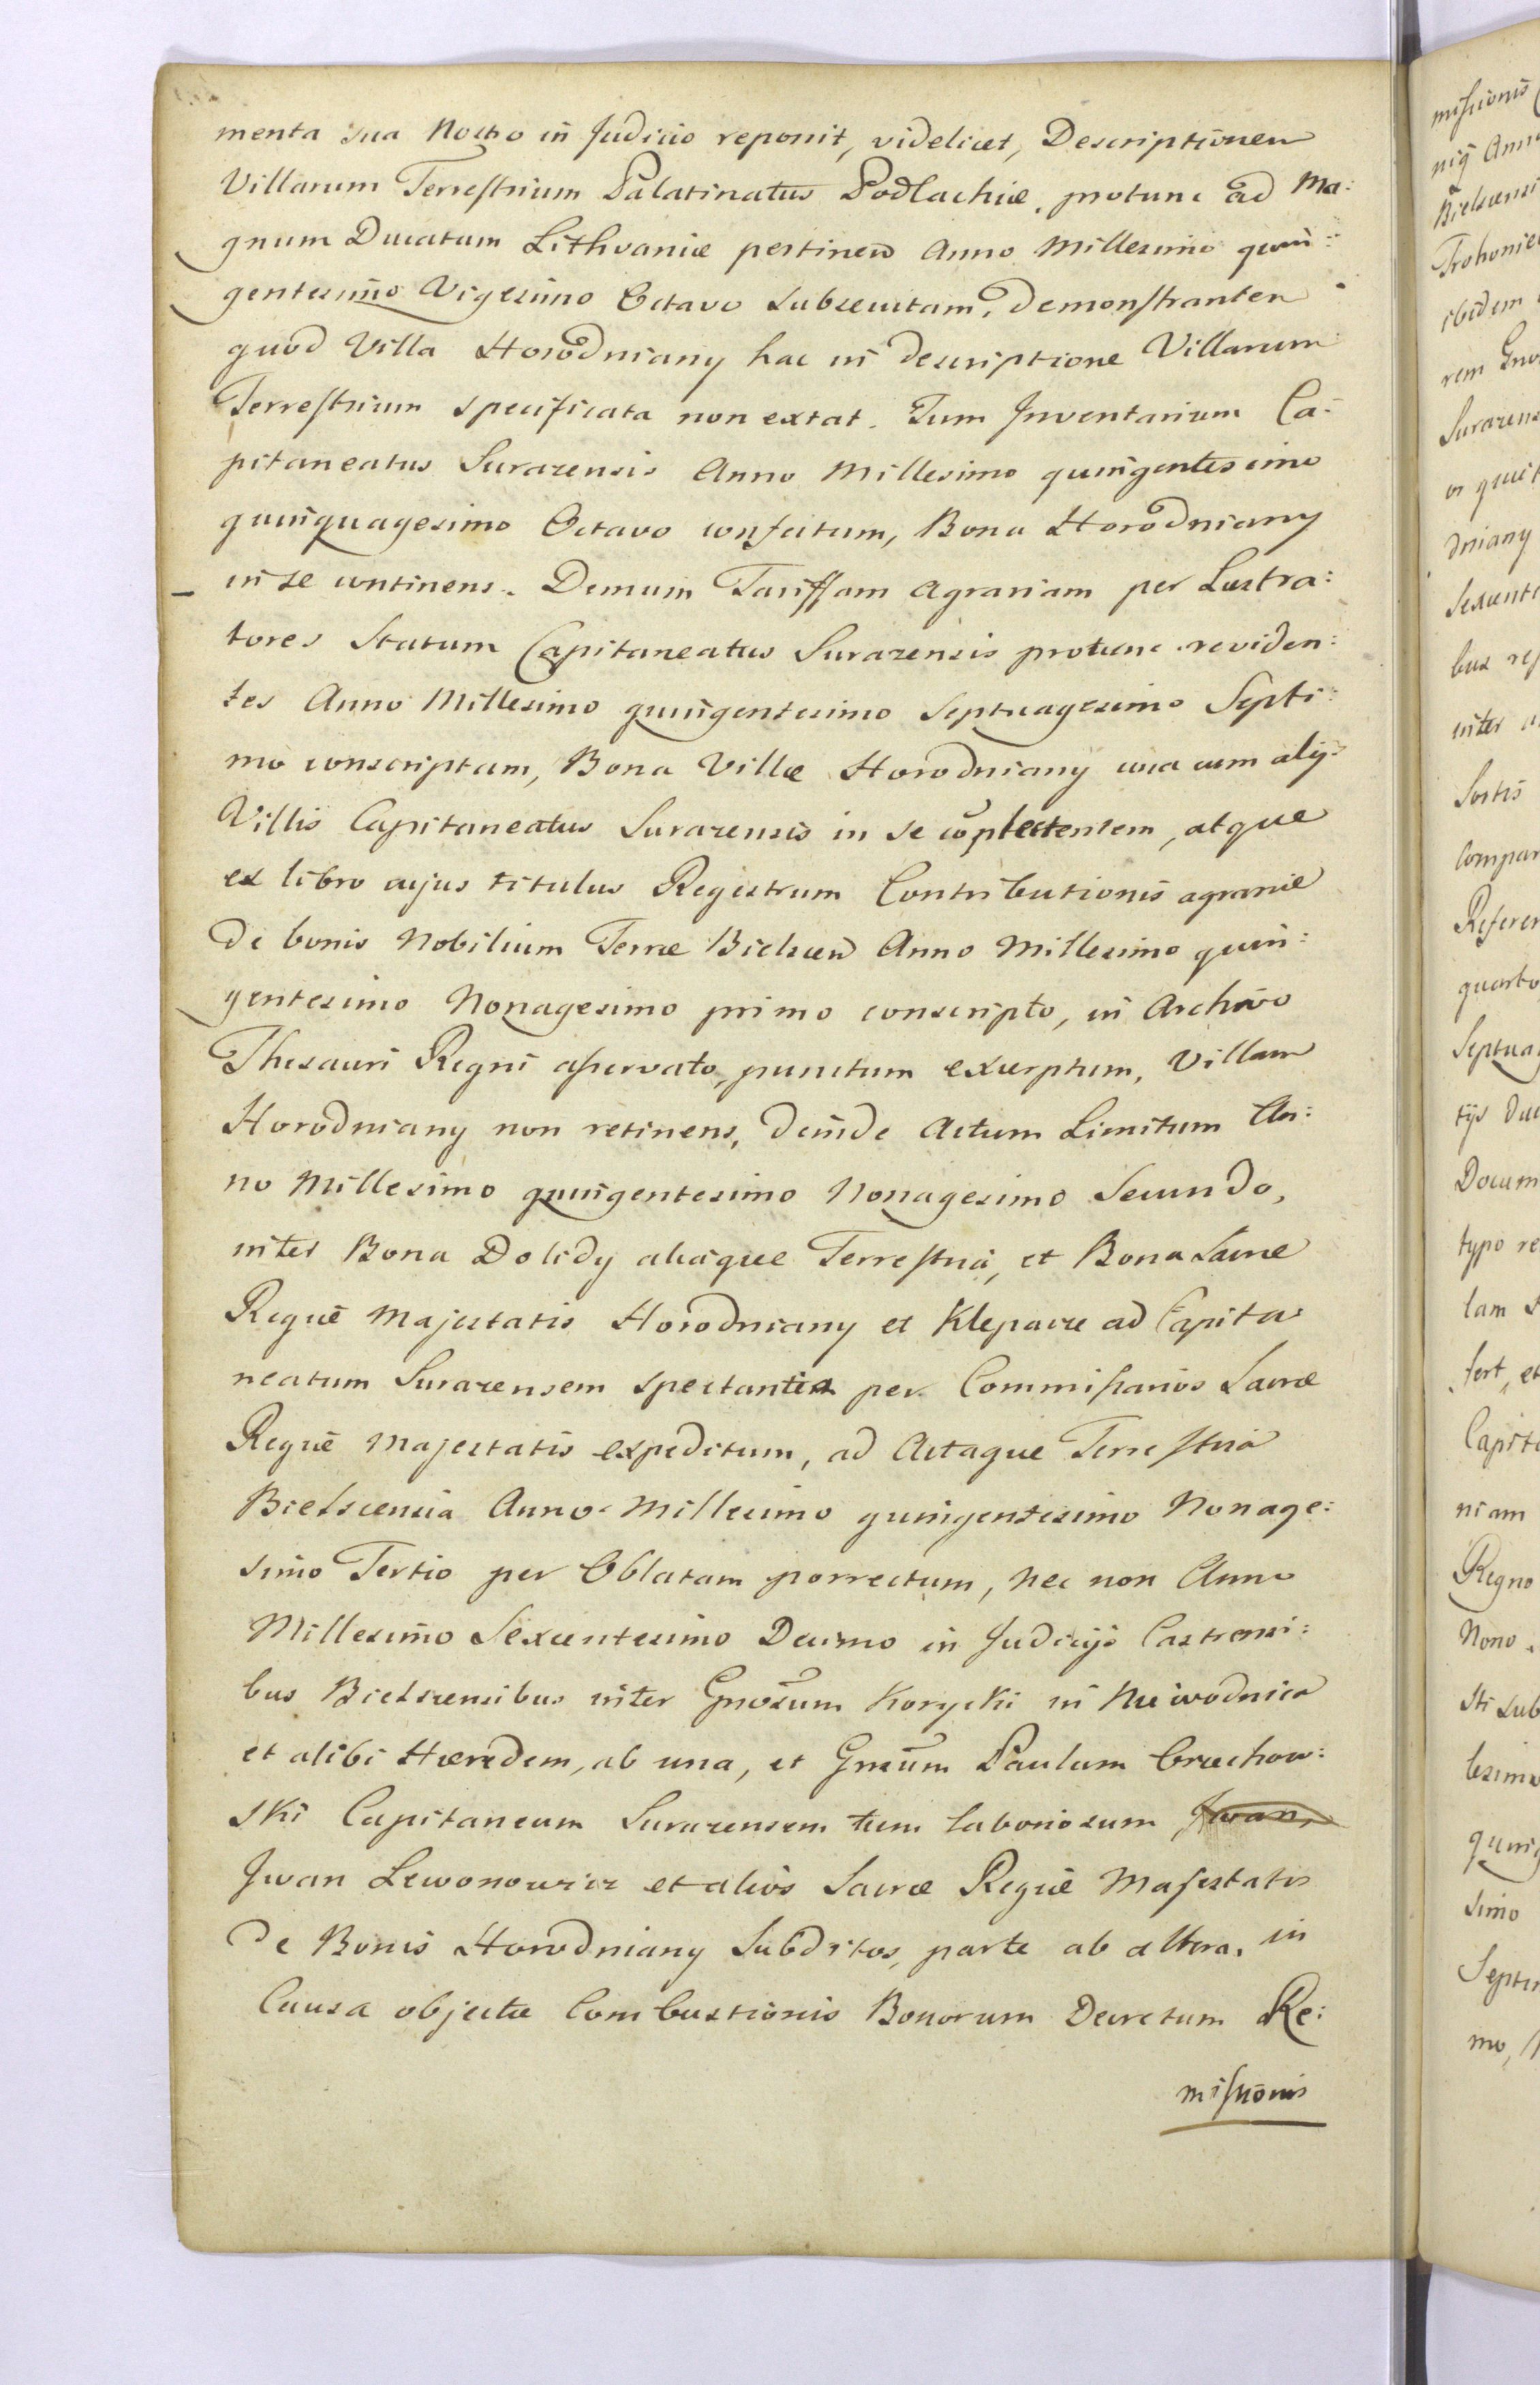 menta sua Nostro in Judicio reponit, videlicet, Descriptionem
Villarum Terrestrium Palatinatus Podlachiæ, protunc ad Ma:
gnum Ducatum Lithvaniæ pertinen Anno Millesimo quin:
gentesimo Vigesimo Octavo subsecutam, demonstrantem
quod Villa Horodniany hac in descriptione Villarum
Terrestrium specificata non extat. Tum Inventarium Ca:
pitaneatus Surazensis Anno Millesimo quingentesimo
quinquagesimo Octavo confectum, Bona Horodniany
in se continens. Demum Tariffam Agrariam per Lustra:
tores Statum Capitaneatus Surazensis protunc reviden:
tes Anno Millesimo quingentesimo Septuagesimo Septi:
mo conscriptam, Bona Villæ Horodniany una cum alijs
Villis Capitaneatus Surazensis in se cōplectentem, atque
ex libro cujus titulus Registrum Contributionis agrariæ
de bonis Nobilium Terræ Bielscen Anno Millesimo quin:
gentesimo Nonagesimo primo conscripto, in Archivo
Thesauri Regni asservato, punctum excerptum, Villam
Horodniany non retinens, deinde Actum Limitum An:
no Millesimo quingentesimo Nonagesimo Secundo,
inter Bona Dolidy aliaque Terrestria, et Bona Sacræ
Regiæ Majestatis Horodniany et Klepacze ad Capita
neatum Surazensem spectantia per Commissarios Sacræ
Regiæ Majestatis expeditum, ad Actaque Terrestria
Bielscensia Anno Millesimo quingentesimo Nonage:
simo Tertio per Oblatam porrectum, nec non Anno
Millesimo Sexcentesimo Decimo in Judicijs Castrensi:
bus Bielscensibus inter Gnosum Korycki in Niewodnica
et alibi Hæredem, ab una, et Gneum Paulum Orzechow:
ski Capitaneum Surazensem tum laboriosum Iwan,
Iwan Lewonowicz et alios Sacræ Regiæ Majestatis
de Bonis Horodniany Subditos, parte ab altera, in
Causa objectæ Combustionis Bonorum Decretum Re:
missionis
missionis
nig Anno
Bielscensi
ibidem
rem Gno
Surazens
dniany
inter a
Sortis
Compar
Referen
quarto
Septuag
tijs du
Docum
typo re
lam
fert, et
Capita
niam
Regno
Nono.
sti sub
lesimo
quing
simo
Septu
mo,